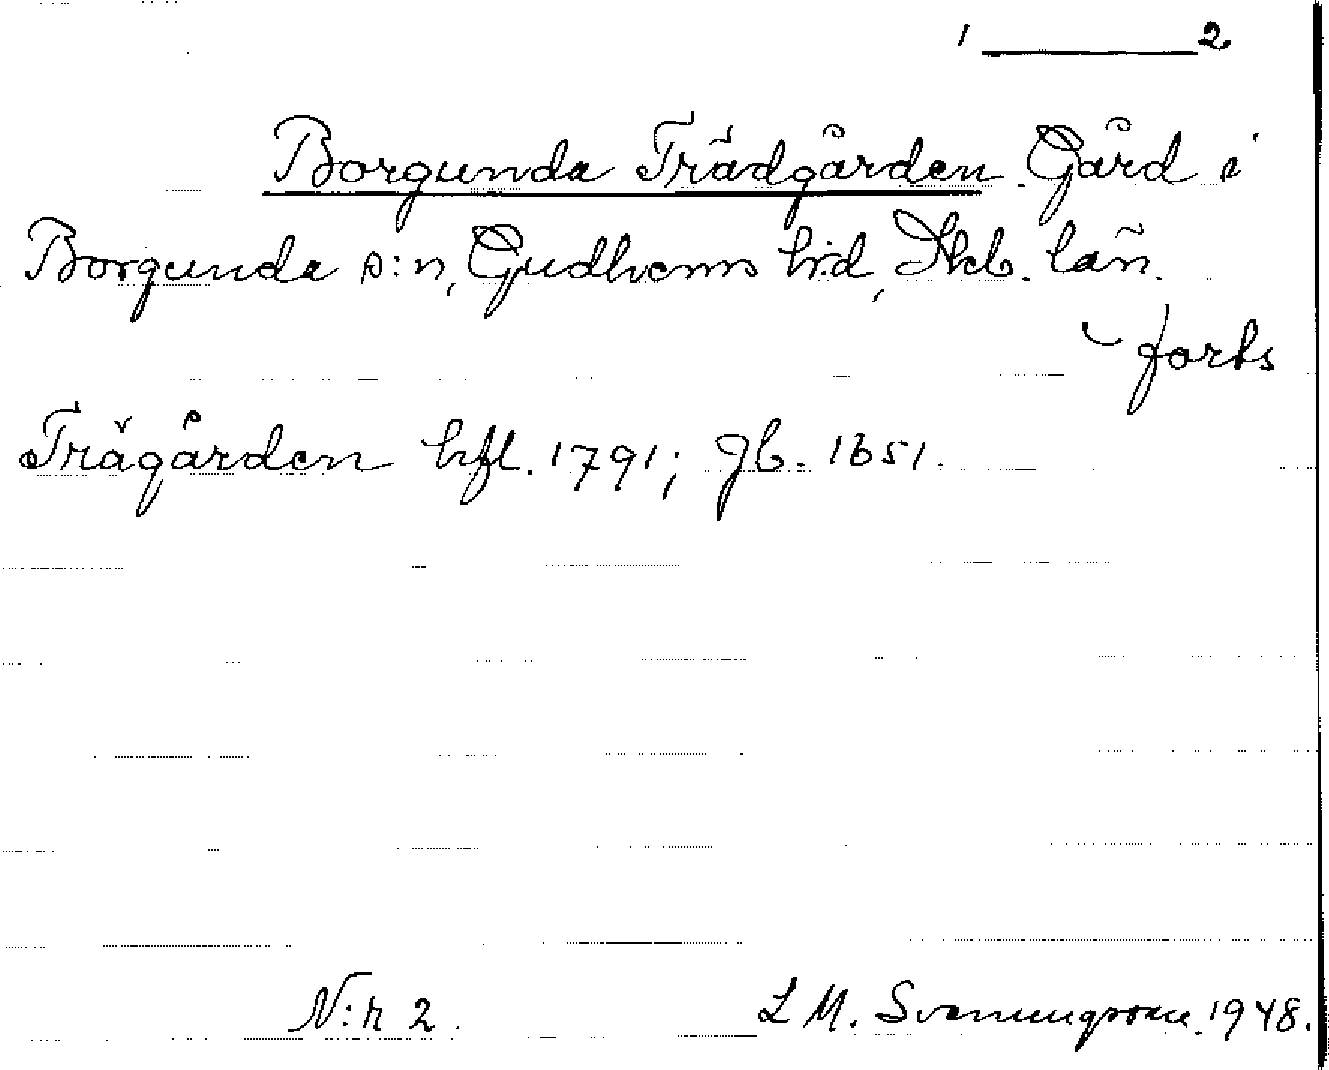 1 ____ 2
Borgunda Trädgården Gård i
Borgunda s:n, Gudhems hd, Skb. län.
forts
Trägården hfl. 1791; jb. 1651.
N:r 2. L M. Svenungsson 1948.